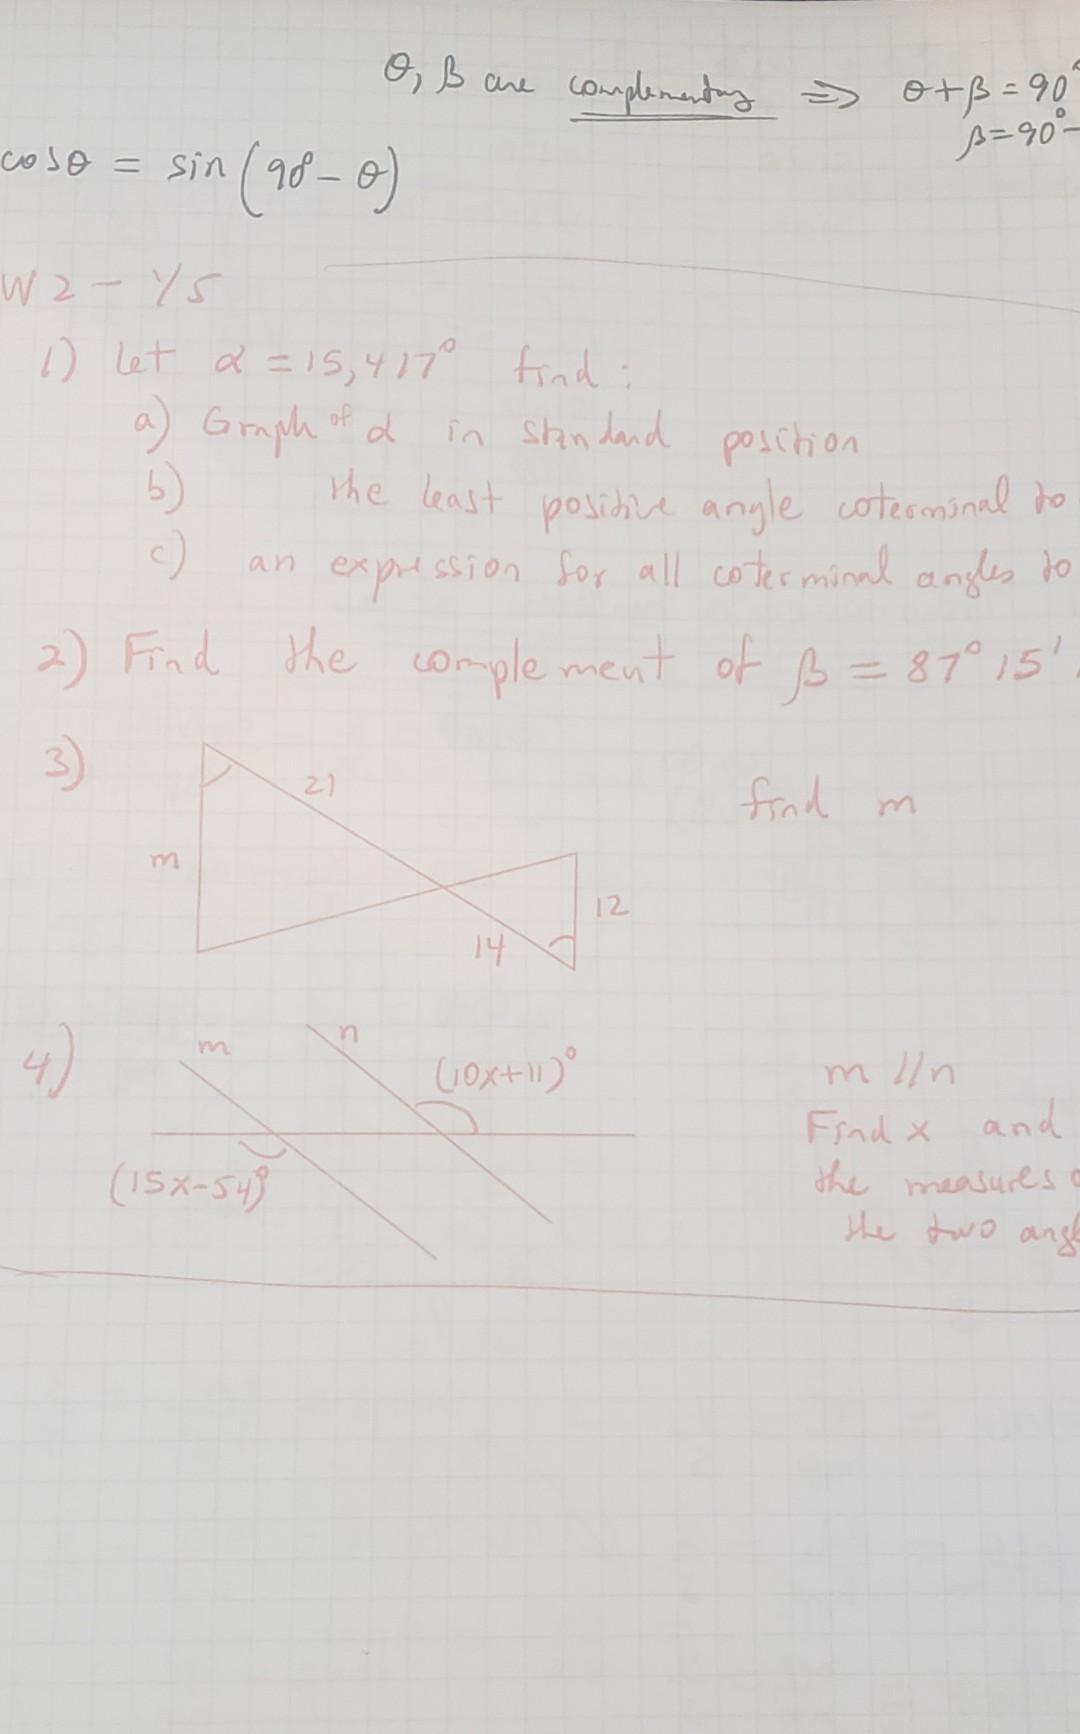 θ, β are complementary ⇒ θ+β=90°
β=90°-
cosθ = sin(90°-θ)
W2-Y5
1) Let α=15,417° find:
a) Graph of α in standard position
b) the least positive angle coterminal to
c) an expression for all coterminal angles to
2) Find the complement of β=87°15'
3)
21
find m
m
12
14
4)
m
n
(10x+11)°
m//n
Find x and
(15x-54)°
the measures
the two